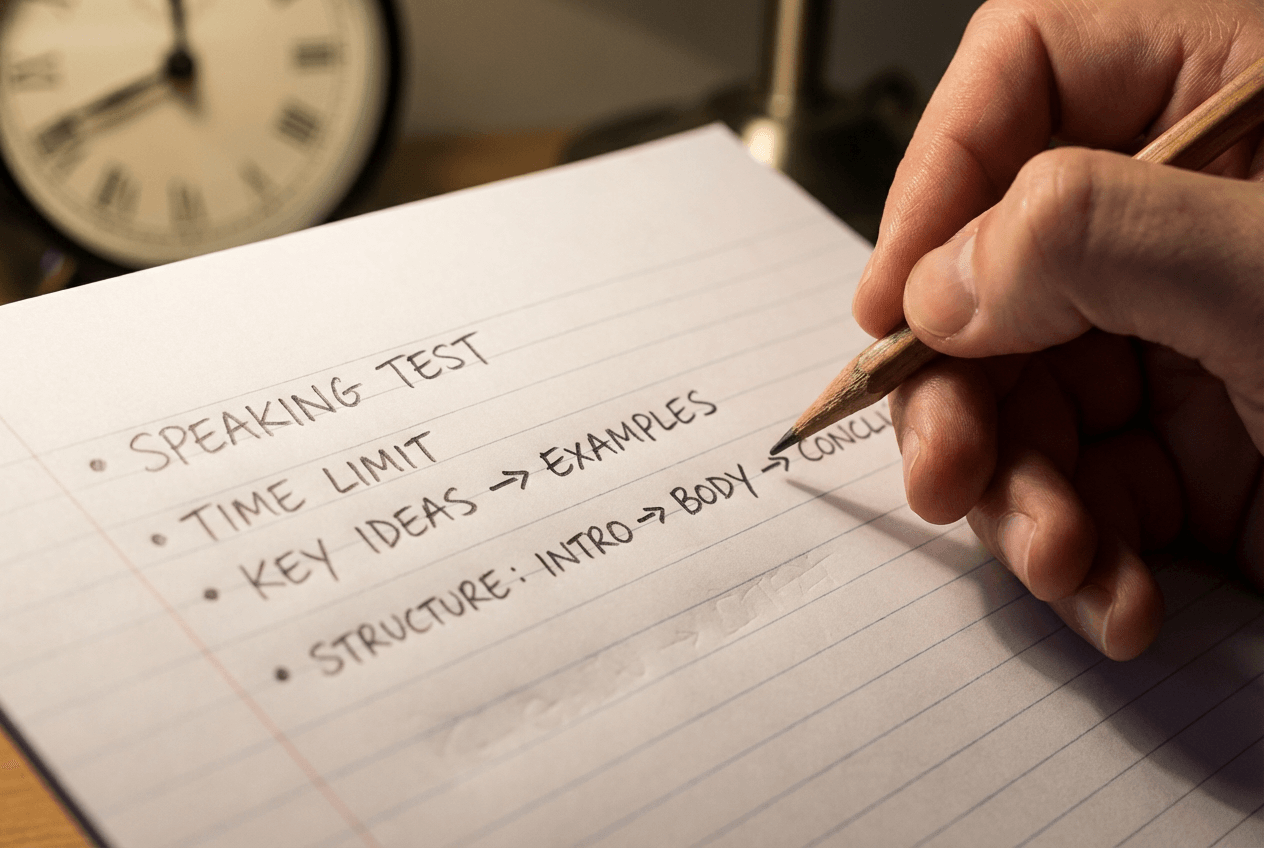 • SPEAKING TEST
• TIME LIMIT
• KEY IDEAS → EXAMPLES
• STRUCTURE: INTRO → BODY →